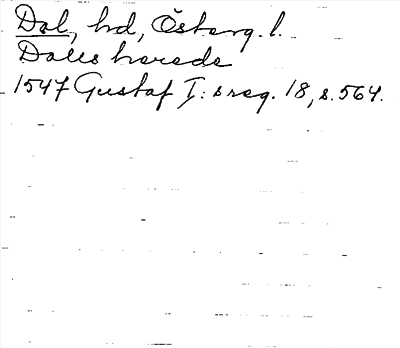 Dal, hd, Österg. l.
Dales herede
1547 Gustaf I:s reg. 18, s. 564.